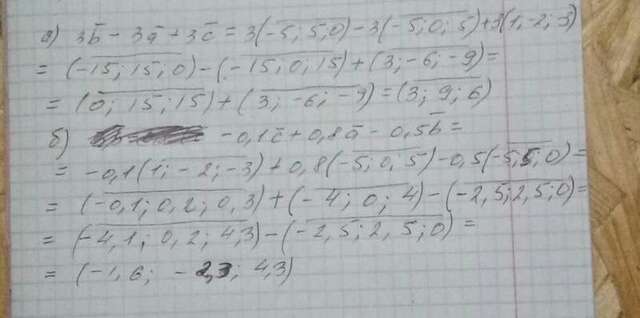 а) 3b̅ - 3a̅ + 3c̅ = 3(-5; 5; 0) - 3(-5; 0; 5) + 3(1; -2; -3)
= (-15; 15; 0) - (-15; 0; 15) + (3; -6; -9) =
= (0; 15; 15) + (3; -6; -9) = (3; 9; 6)
б) -0,1c̅ + 0,8a̅ - 0,5b̅ =
= -0,1(1; -2; -3) + 0,8(-5; 0; 5) - 0,5(-5; 5; 0) =
= (-0,1; 0,2; 0,3) + (-4; 0; 4) - (-2,5; 2,5; 0) =
= (-4,1; 0,2; 4,3) - (-2,5; 2,5; 0) =
= (-1,6; -2,3; 4,3)